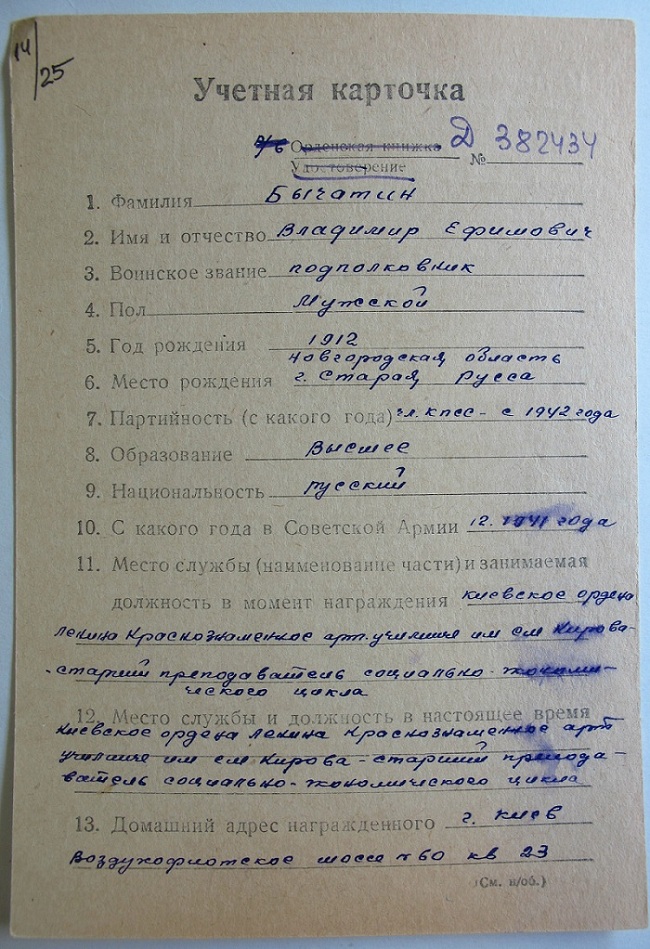 14/25
Учетная карточка
б/б Орденская книжка Д № 382434
Удостоверение
1. Фамилия Бычатин
2. Имя и отчество Владимир Ефимович
3. Воинское звание подполковник
4. Пол Мужской
5. Год рождения 1912
Новгородская область
6. Место рождения г. Старая Русса
7. Партийность (с какого года) чл. КПСС - с 1942 года
8. Образование Высшее
9. Национальность русский
10. С какого года в Советской Армии 12. 1941 года
11. Место службы (наименование части) и занимаемая
должность в момент награждения Киевское ордена
Ленина Краснознаменное арт. училище им см Кирова-
-старший преподаватель социально-экономи-
ческого цикла
12. Место службы и должность в настоящее время
Киевское ордена Ленина Краснознаменное арт
училище им см Кирова - старший препода-
ватель социально-экономического цикла
13. Домашний адрес награжденного г. Киев
Воздухофлотское шоссе № 60 кв 23
(См. н/об.)